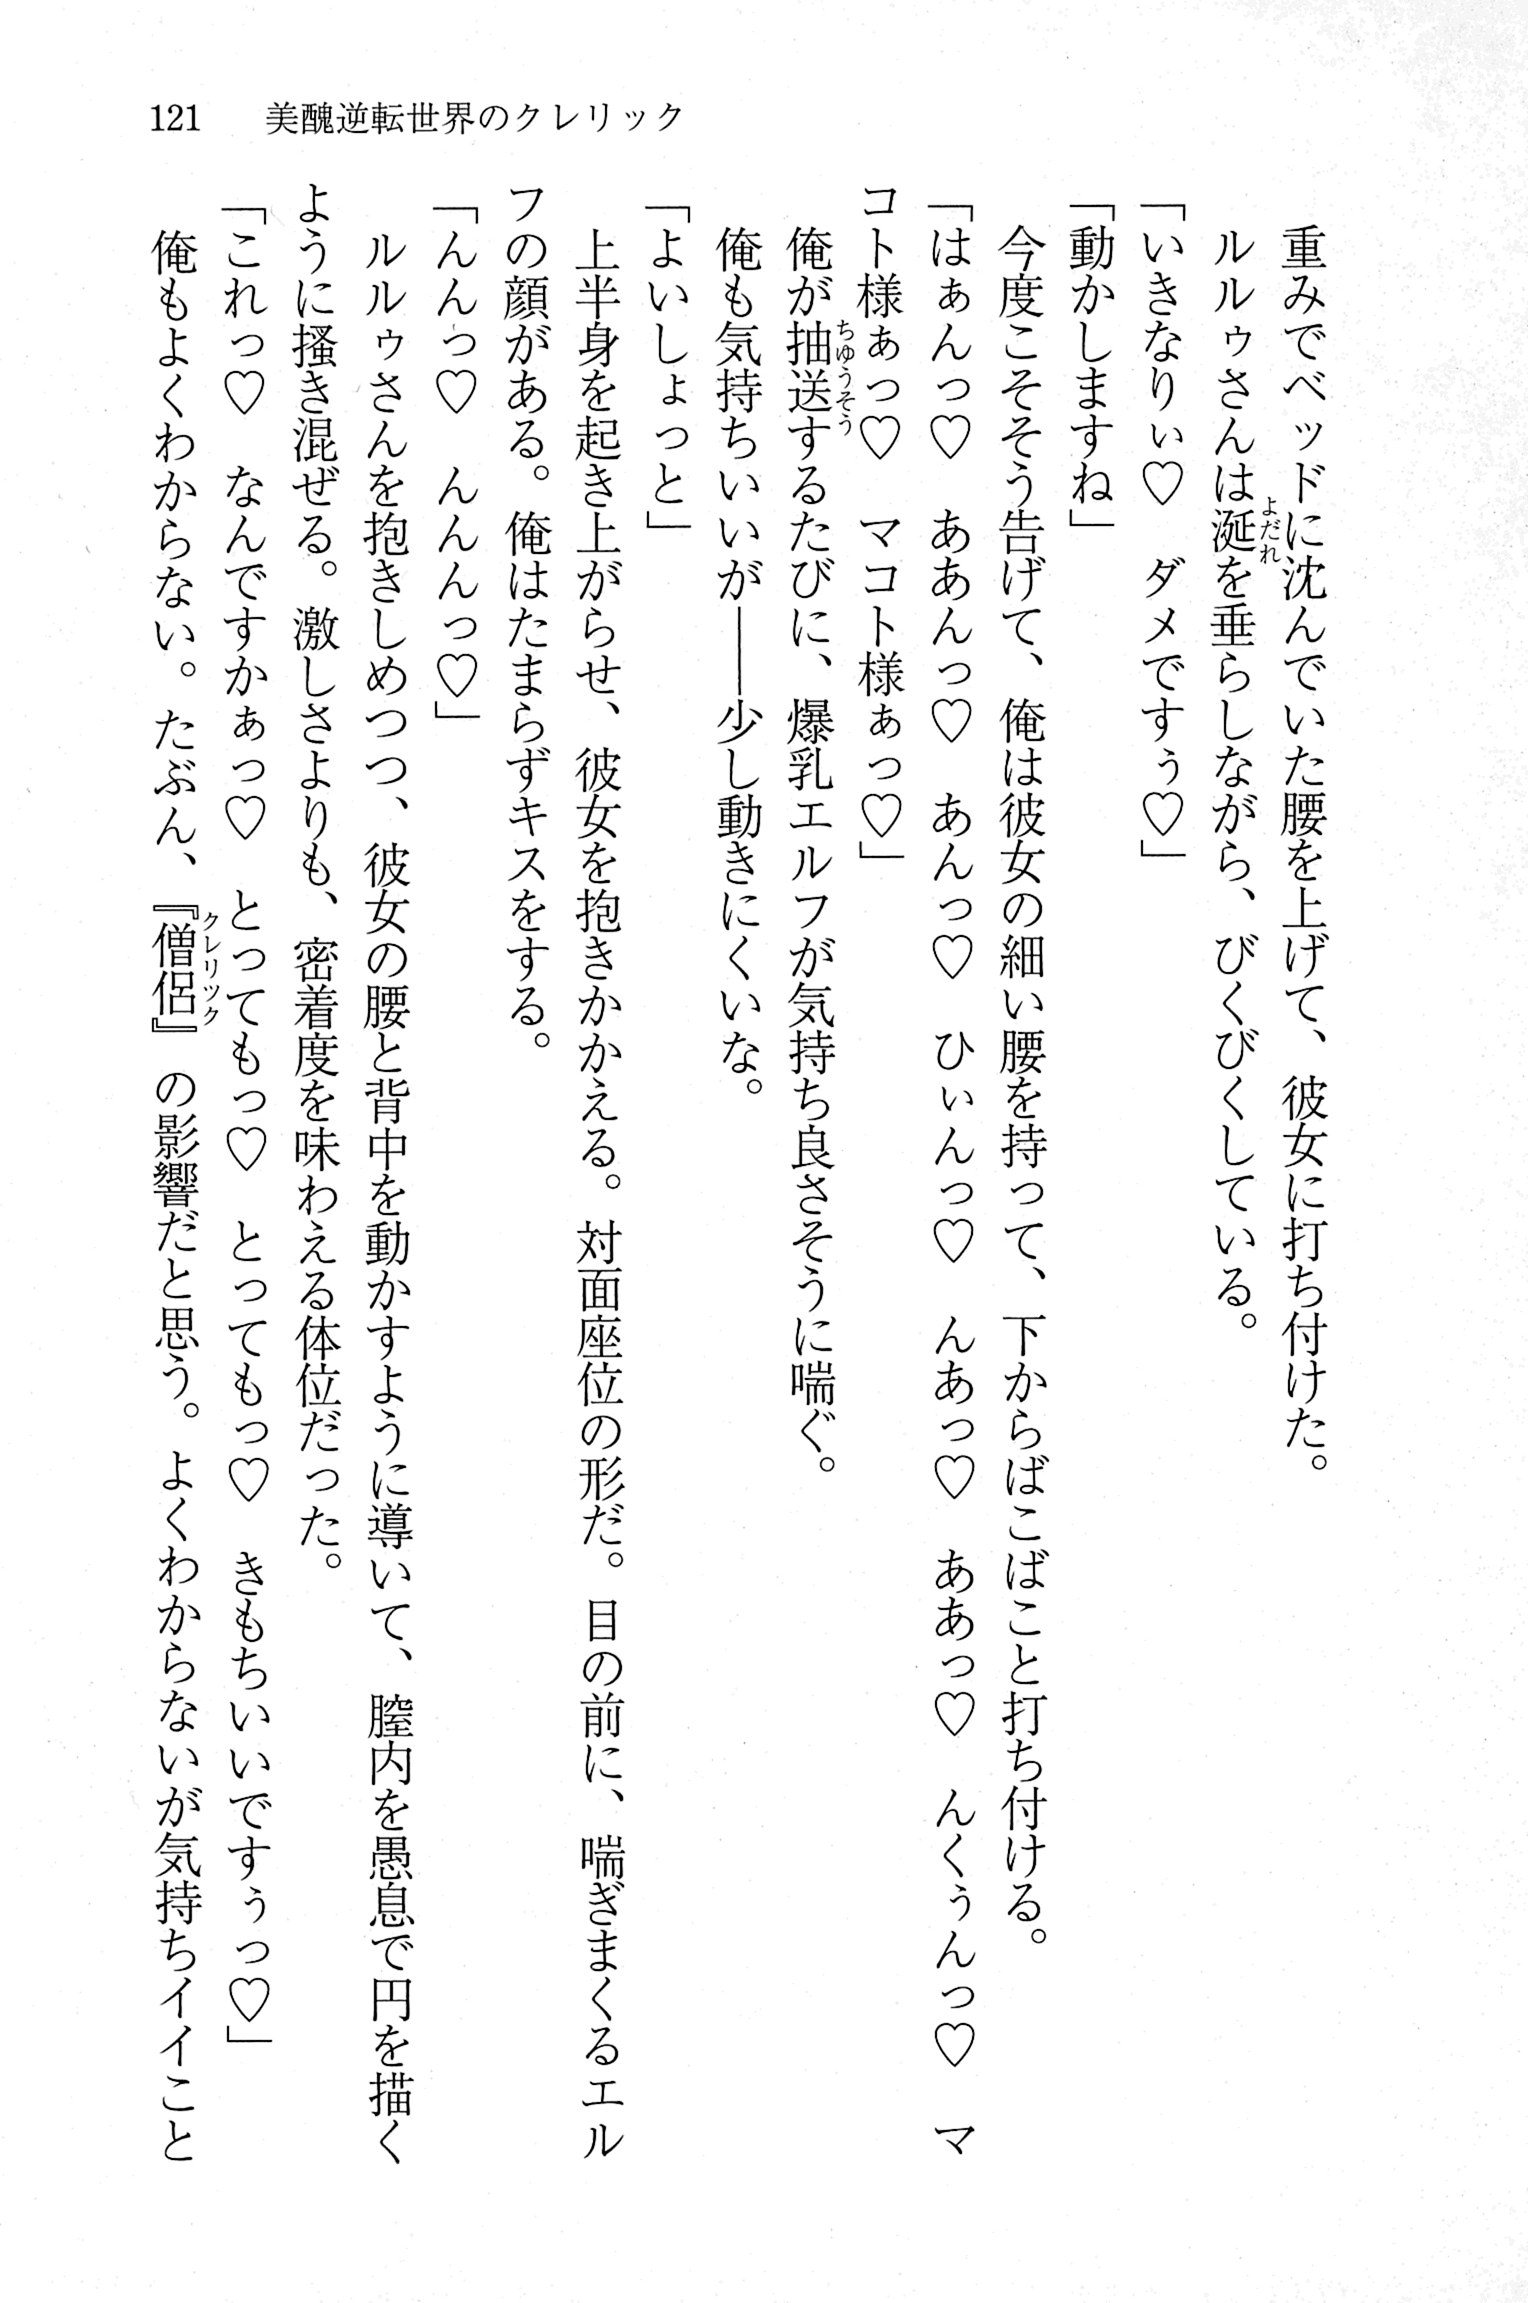 121　美醜逆転世界のクレリック
　重みでベッドに沈んでいた腰を上げて、彼女に打ち付けた。
　ルルゥさんは涎を垂らしながら、びくびくしている。
「いきなりぃ♡　ダメですぅ♡」
「動かしますね」
　今度こそそう告げて、俺は彼女の細い腰を持って、下からばこばこと打ち付ける。
「はぁんっ♡　ああんっ♡　あんっ♡　ひぃんっ♡　んあっ♡　ああっ♡　んくぅんっ♡　マ
コト様ぁっ♡　マコト様ぁっ♡」
　俺が抽送するたびに、爆乳エルフが気持ち良さそうに喘ぐ。
　俺も気持ちいいが――少し動きにくいな。
「よいしょっと」
　上半身を起き上がらせ、彼女を抱きかかえる。対面座位の形だ。目の前に、喘ぎまくるエル
フの顔がある。俺はたまらずキスをする。
「んんっ♡　んんんっ♡」
　ルルゥさんを抱きしめつつ、彼女の腰と背中を動かすように導いて、膣内を愚息で円を描く
ように掻き混ぜる。激しさよりも、密着度を味わえる体位だった。
「これっ♡　なんですかぁっ♡　とってもっ♡　とってもっ♡　きもちいいですぅっ♡」
　俺もよくわからない。たぶん、『僧侶』の影響だと思う。よくわからないが気持ちイイこと
よだれ
ちゅうそう
クレリック